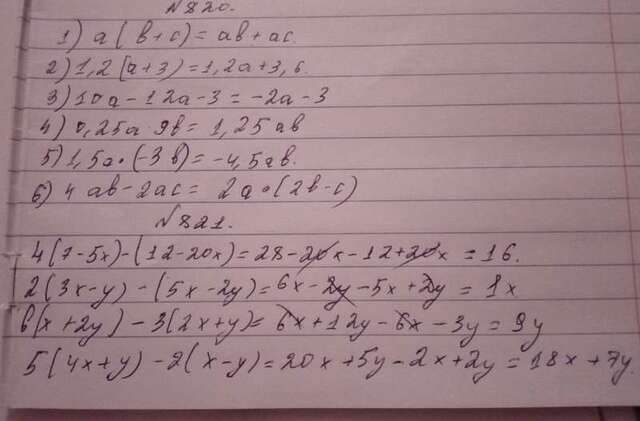 №820.
1) a(b+c)=ab+ac.
2) 1,2(a+3)=1,2a+3,6.
3) 10a-12a-3=-2a-3
4) 0,25a·9b=1,25ab
5) 1,5a·(-3b)=-4,5ab.
6) 4ab-2ac=2a·(2b-c)
№821.
4(7-5x)-(12-20x)=28-20x-12+20x=16.
2(3x-y)-(5x-2y)=6x-2y-5x+2y=1x
6(x+2y)-3(2x+y)=6x+12y-6x-3y=9y
5(4x+y)-2(x-y)=20x+5y-2x+2y=18x+7y.